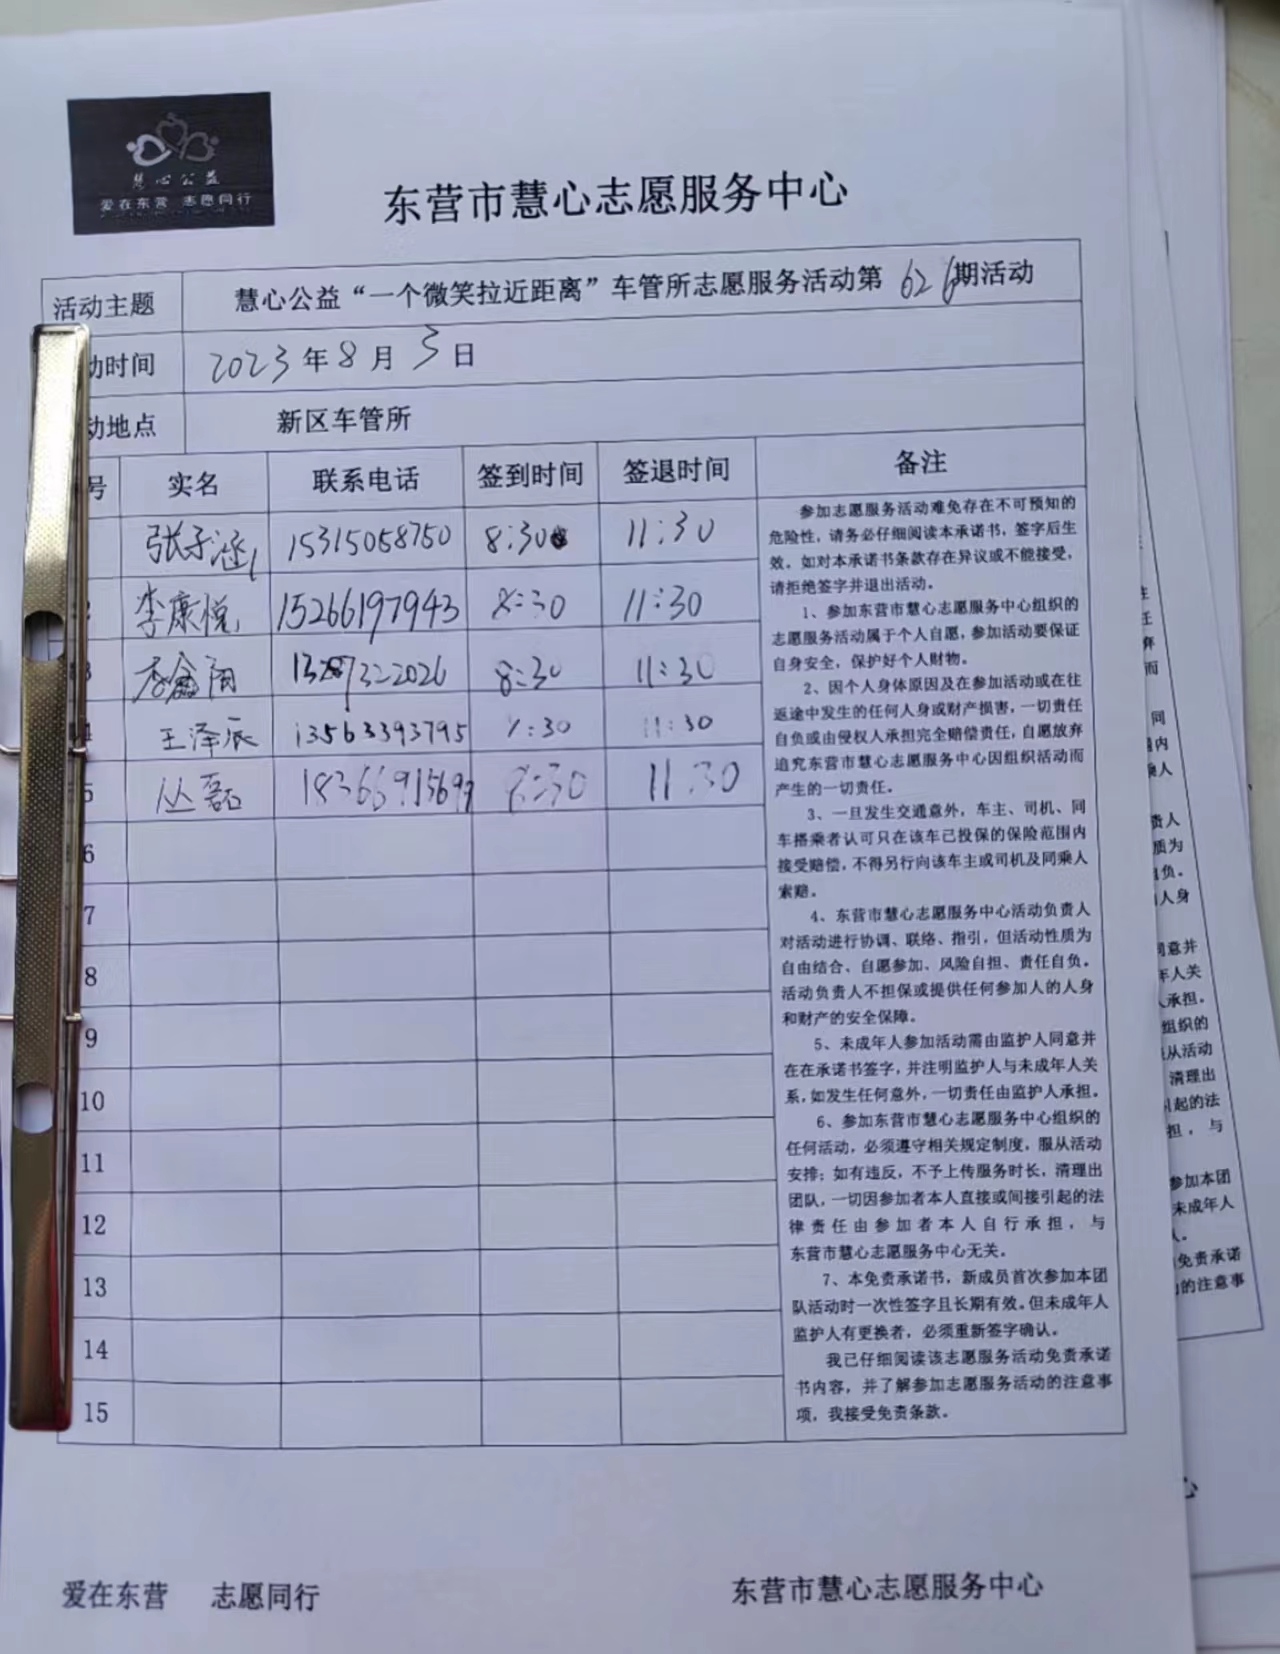 慧心公益
爱在东营 志愿同行
东营市慧心志愿服务中心
活动主题 慧心公益“一个微笑拉近距离”车管所志愿服务活动第626期活动
动时间 2023年8月3日
动地点 新区车管所
号 实名 联系电话 签到时间 签退时间 备注
张子涵 15315058750 8:30 11:30
李康悦 15266197943 8:30 11:30
3 李鑫 8:30 11:30
4 王泽辰 13563393795 8:30 11:30
5 丛磊 8:30 11:30
6
7
8
9
10
11
12
13
14
15
参加志愿服务活动难免存在不可预知的
危险性,请务必仔细阅读本承诺书,签字后生
效。如对本承诺书条款存在异议或不能接受,
请拒绝签字并退出活动。
1、参加东营市慧心志愿服务中心组织的
志愿服务活动属于个人自愿,参加活动要保证
自身安全,保护好个人财物。
2、因个人身体原因及在参加活动或在往
返途中发生的任何人身或财产损害,一切责任
自负或由侵权人承担完全赔偿责任,自愿放弃
追究东营市慧心志愿服务中心因组织活动而
产生的一切责任。
3、一旦发生交通意外,车主、司机、同
车搭乘者认可只在该车已投保的保险范围内
接受赔偿,不得另行向该车主或司机及同乘人
索赔。
4、东营市慧心志愿服务中心活动负责人
对活动进行协调、联络、指引,但活动性质为
自由结合、自愿参加、风险自担、责任自负。
活动负责人不担保或提供任何参加人的人身
和财产的安全保障。
5、未成年人参加活动需由监护人同意并
在在承诺书签字,并注明监护人与未成年人关
系,如发生任何意外,一切责任由监护人承担。
6、参加东营市慧心志愿服务中心组织的
任何活动,必须遵守相关规定制度,服从活动
安排;如有违反,不予上传服务时长,清理出
团队,一切因参加者本人直接或间接引起的法
律责任由参加者本人自行承担,与
东营市慧心志愿服务中心无关。
7、本免责承诺书,新成员首次参加本团
队活动时一次性签字且长期有效。但未成年人
监护人有更换者,必须重新签字确认。
我已仔细阅读该志愿服务活动免责承诺
书内容,并了解参加志愿服务活动的注意事
项,我接受免责条款。
爱在东营 志愿同行 东营市慧心志愿服务中心